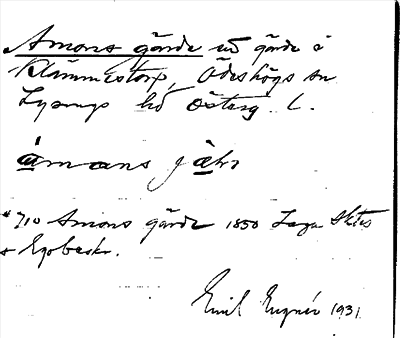 Amons gärde ett gärde å
Klämmestorp, Ödeshögs sn
Lysings hd Österg. l.
åmans jähr
#710 Amons gärde 1850 Laga Sktes
Emil 1931